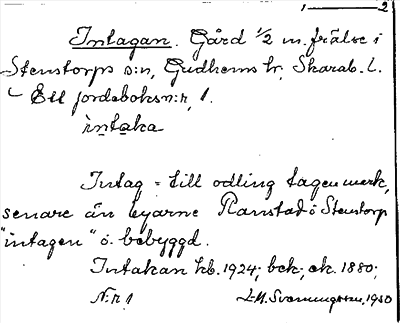 1 — 2
Intagan. Gård 1/2 m. frälse i
Stenstorps s:n, Gudhems hr, Skarab. l.
Ett jordeboksn:r, 1.
intaka
Intag = till odling tagen mark,
senare än byarne Ranstad o Stenstorp
"intagen" o. bebyggd.
Intakan kb. 1924; bck; ek. 1880;
N:r 1 L.M. Svenungsson, 1930